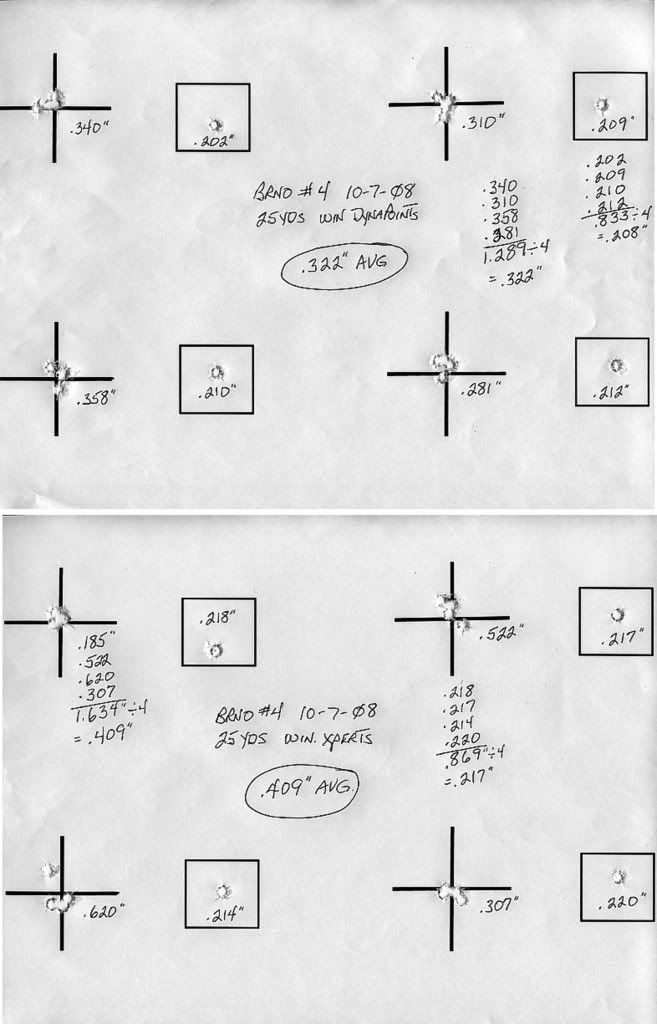 .340"
.202"
.310"
.209"
BRNO #4 10-7-08
25 YDS WIN DYNAPOINTS
.322" AVG
.340
.310
.358
.281
1.289÷4
=.322"
.202
.209
.210
.212
.833÷4
=.208"
.358"
.210"
.281"
.212"
.185"
.522
.620
.307
1.634"÷4
=.409"
.218"
.522"
.217"
BRNO #4 10-7-08
25 YDS WIN. XPERTS
.409" AVG.
.218
.217
.214
.220
.869"÷4
=.217"
.620"
.214"
.307"
.220"